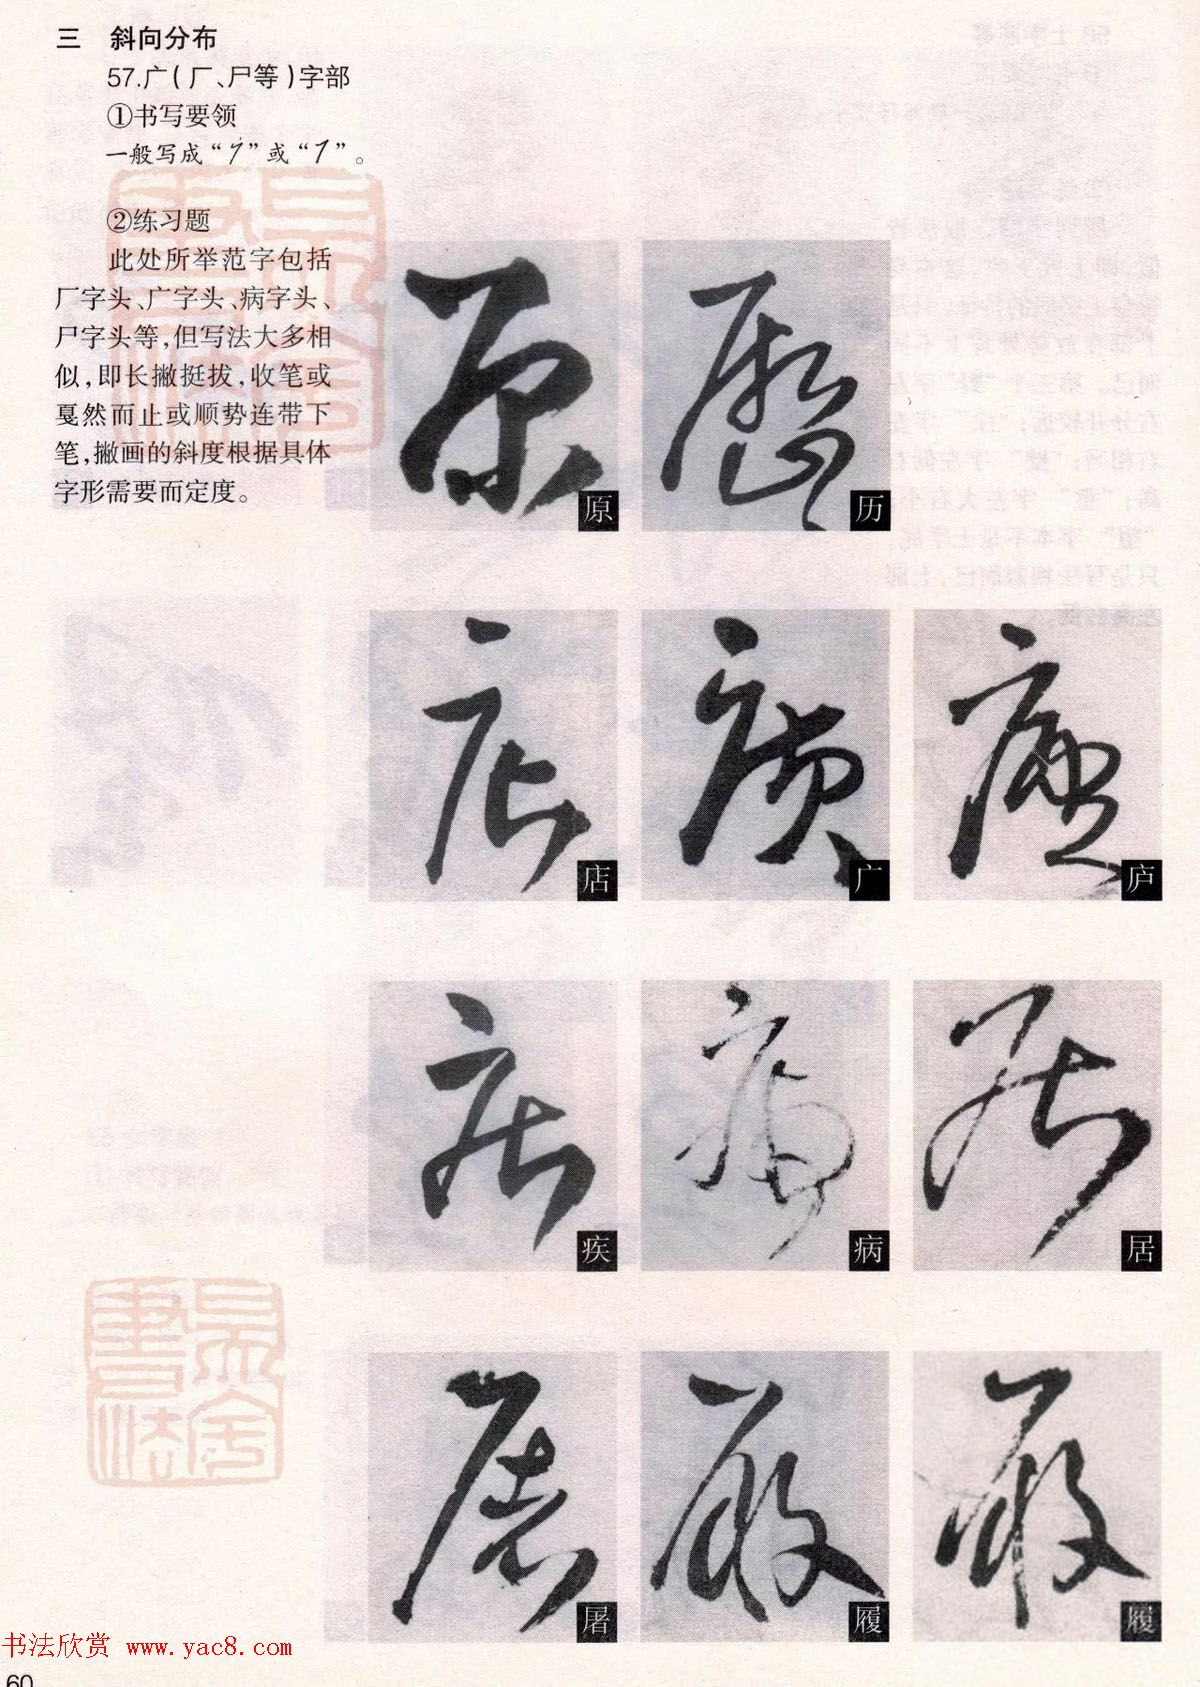 三 斜向分布
57.广(厂、尸等)字部
①书写要领
一般写成“”或“”。
②练习题
此处所举范字包括
厂字头、广字头、病字头、
尸字头等,但写法大多相
似,即长撇挺拔,收笔或
戛然而止或顺势连带下
笔,撇画的斜度根据具体
字形需要而定度。
原 历
店 广 庐
疾 病 居
屠 履 履
书法欣赏 www.yac8.com
60